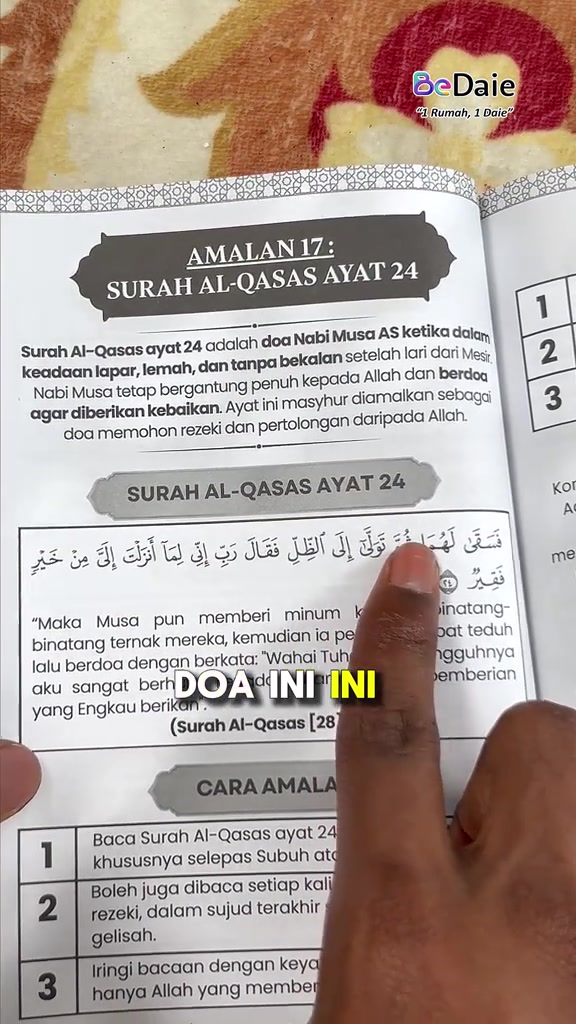 BeDaie
"1 Rumah, 1 Daie"
AMALAN 17:
SURAH AL-QASAS AYAT 24
Surah Al-Qasas ayat 24 adalah doa Nabi Musa AS ketika dalam
keadaan lapar, lemah, dan tanpa bekalan setelah lari dari Mesir.
Nabi Musa tetap bergantung penuh kepada Allah dan berdoa
agar diberikan kebaikan. Ayat ini masyhur diamalkan sebagai
doa memohon rezeki dan pertolongan daripada Allah.
SURAH AL-QASAS AYAT 24
فَسَقَىٰ لَهُمَا ثُمَّ تَوَلَّىٰٓ إِلَى ٱلظِّلِّ فَقَالَ رَبِّ إِنِّي لِمَآ أَنزَلْتَ إِلَيَّ مِنْ خَيْرٍ
فَقِيرٌ ٢٤
"Maka Musa pun memberi minum binatang-
binatang ternak mereka, kemudian ia teduh
lalu berdoa dengan berkata: "Wahai
aku sangat pemberian
yang Engkau berikan".
(Surah Al-Qasas [28]
DOA INI INI
CARA
1 Baca Surah Al-Qasas ayat 24
khususnya selepas Subuh
2 Boleh juga dibaca setiap kali
rezeki, dalam sujud terakhir
gelisah.
3 Iringi bacaan dengan
hanya Allah yang
1
2
3